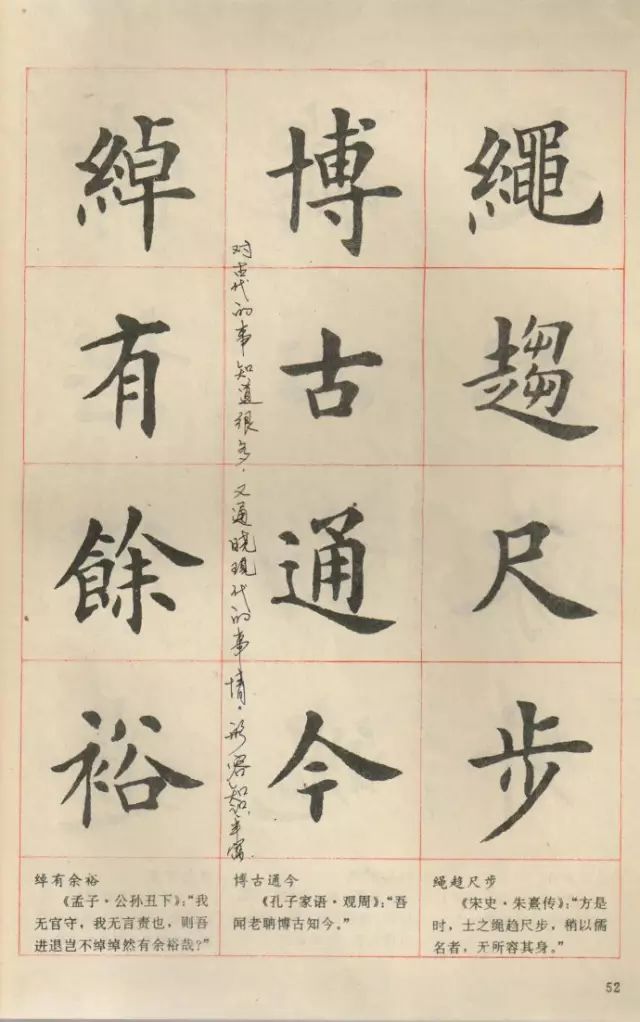 繩趨尺步
博古通今
对古代的事知道很多，又通晓现代的事情。形容知识丰富。
綽有餘裕
绰有余裕
《孟子·公孙丑下》：“我
无官守，我无言责也，则吾
进退岂不绰绰然有余裕哉？”
博古通今
《孔子家语·观周》：“吾
闻老聃博古知今。”
绳趋尺步
《宋史·朱熹传》：“方是
时，士之绳趋尺步，稍以儒
名者，无所容其身。”
52